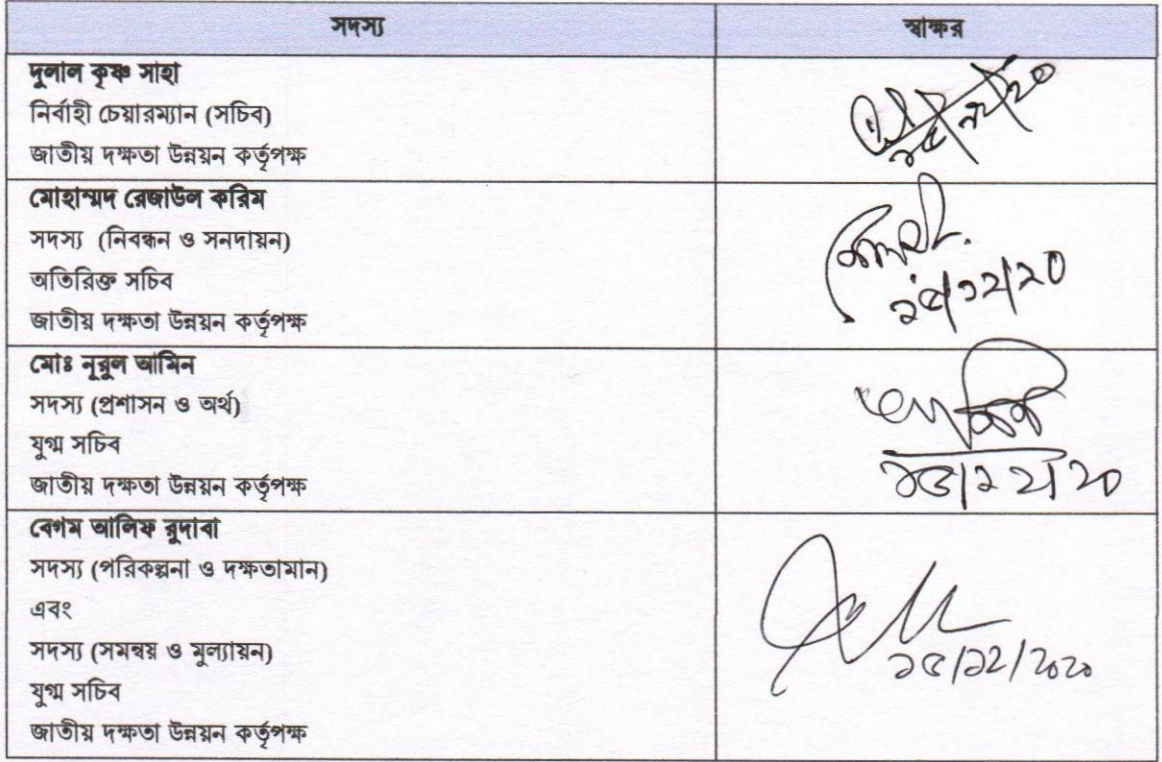 সদস্য স্বাক্ষর
দুলাল কৃষ্ণ সাহা
নির্বাহী চেয়ারম্যান (সচিব)
জাতীয় দক্ষতা উন্নয়ন কর্তৃপক্ষ
মোহাম্মদ রেজাউল করিম
সদস্য (নিবন্ধন ও সনদায়ন)
অতিরিক্ত সচিব
জাতীয় দক্ষতা উন্নয়ন কর্তৃপক্ষ
মোঃ নূরুল আমিন
সদস্য (প্রশাসন ও অর্থ)
যুগ্ম সচিব
জাতীয় দক্ষতা উন্নয়ন কর্তৃপক্ষ
বেগম আলিফ রুদাবা
সদস্য (পরিকল্পনা ও দক্ষতামান)
এবং
সদস্য (সমন্বয় ও মুল্যায়ন)
যুগ্ম সচিব
১৫/১২/২০২০
জাতীয় দক্ষতা উন্নয়ন কর্তৃপক্ষ